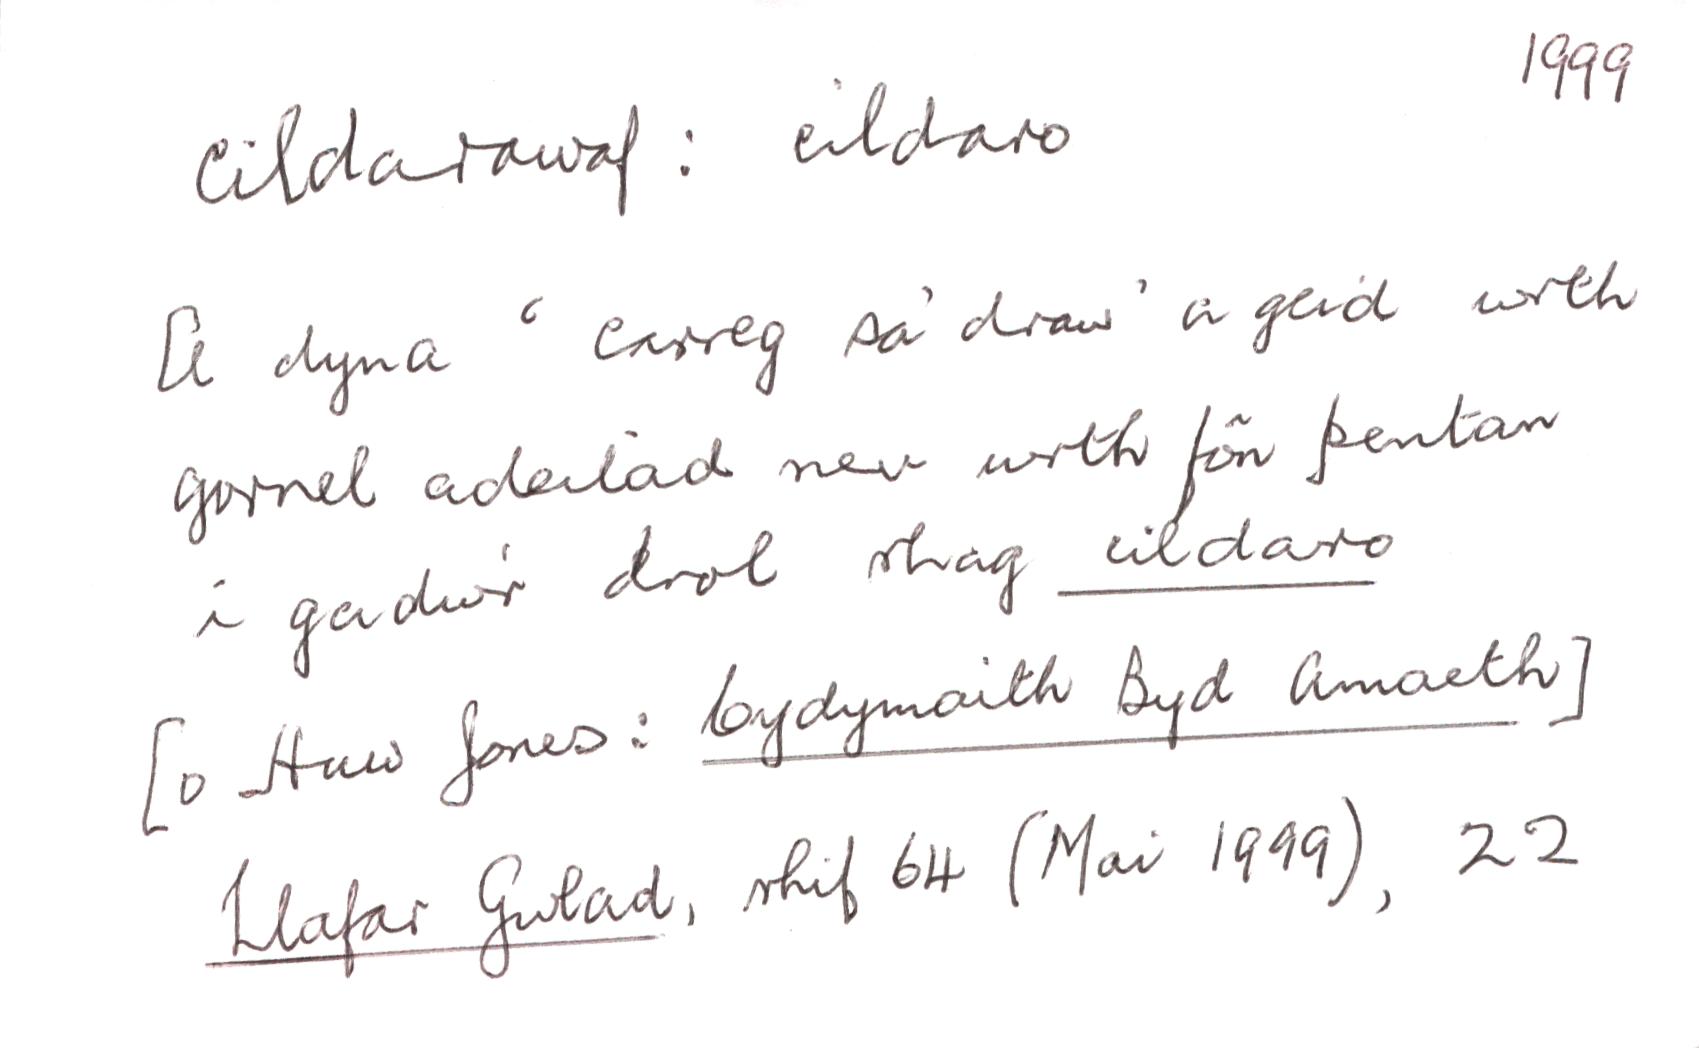 1999
cildarawaf: cildaro
A dyna 'carreg sa' draw' a geid wrth
gornel adeilad neu wrth fôn pentan
i gadw'r drol rhag cildaro
[o Huw Jones: Cydymaith Byd Amaeth]
Llafar Gwlad, rhif 64 (Mai 1999), 22